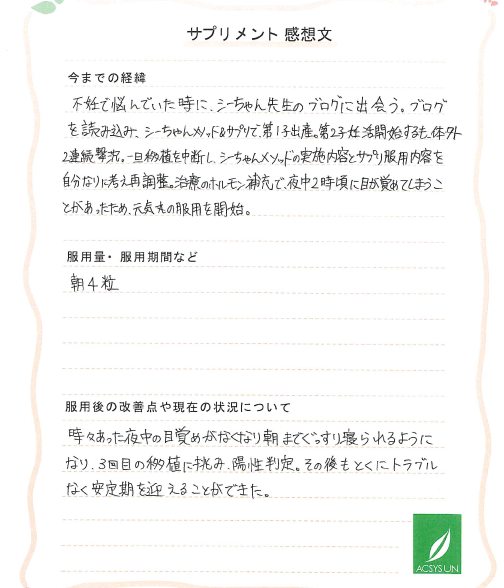 サプリメント 感想文
今までの経緯
不妊で悩んでいた時に、シーちゃん先生のブログに出会う。ブログ
を読み込み、シーちゃんメソッド&サプリで、第1子出産。第2子妊活開始するも、体外
2連続撃沈。一旦移植を中断し、シーちゃんメソッドの実施内容とサプリ服用内容を
自分なりに考え再調整。治療のホルモン補充で、夜中2時頃に目が覚めてしまうこ
とがあったため、元気丸の服用を開始。
服用量・服用期間など
朝4粒
服用後の改善点や現在の状況について
時々あった夜中の目覚めがなくなり朝までぐっすり寝られるように
なり、3回目の移植に挑み、陽性判定。その後もとくにトラブル
なく安定期を迎えることができた。
ACSYSUN